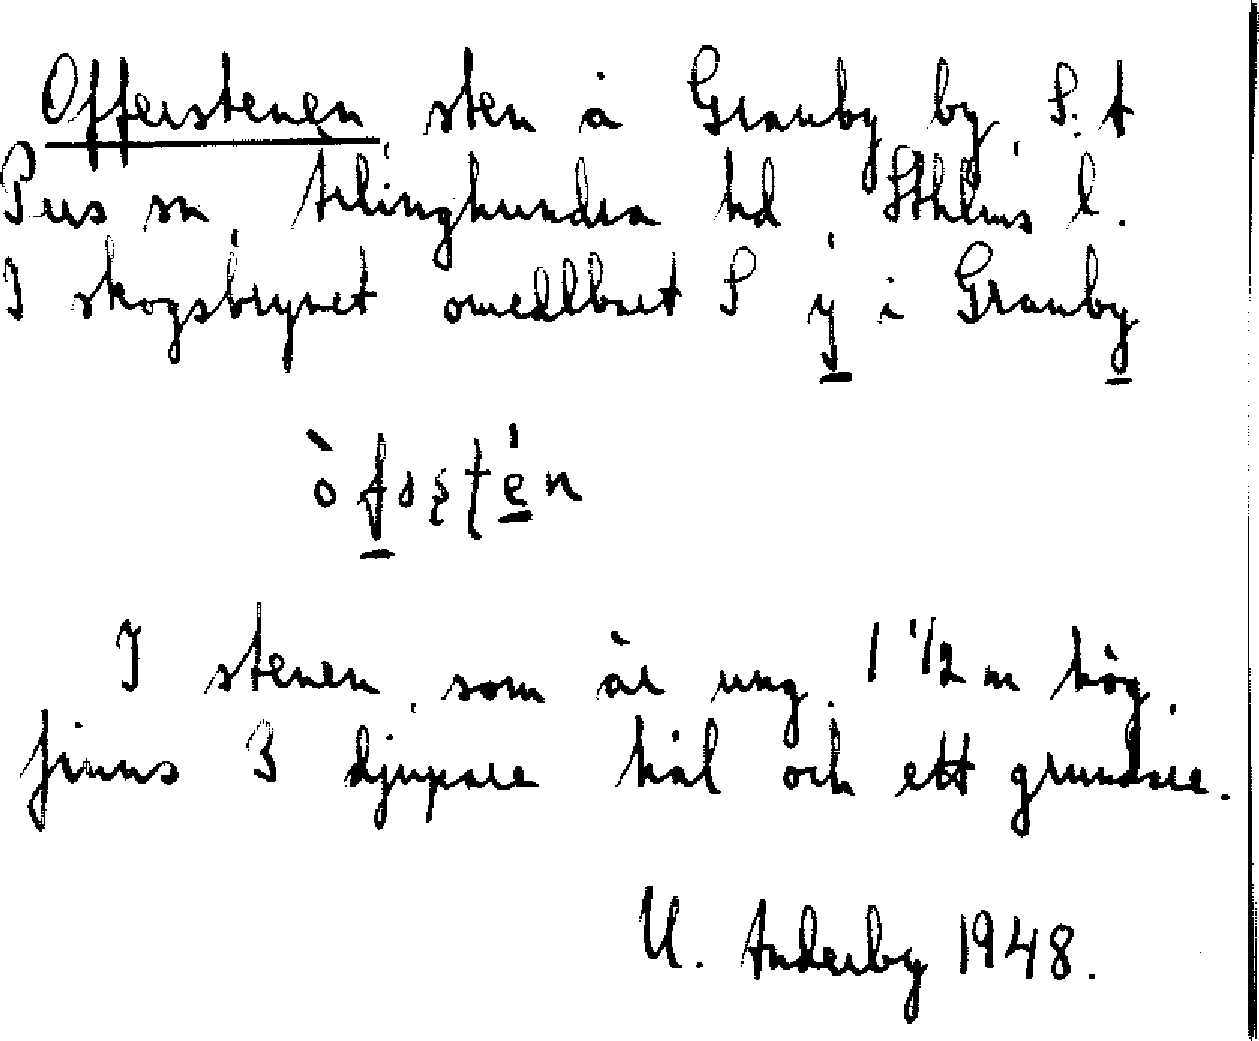 Offerstenen, sten å Granby by, S:t
Pers sn, Arlinghundra hd, Sthlms l.
I skogsbrynet omedlbart S y i Granby
I stenen, som är ung. 1 1/2 m hög,
finns 3 djupare hål och ett grundare.
U. Anderby 1948.